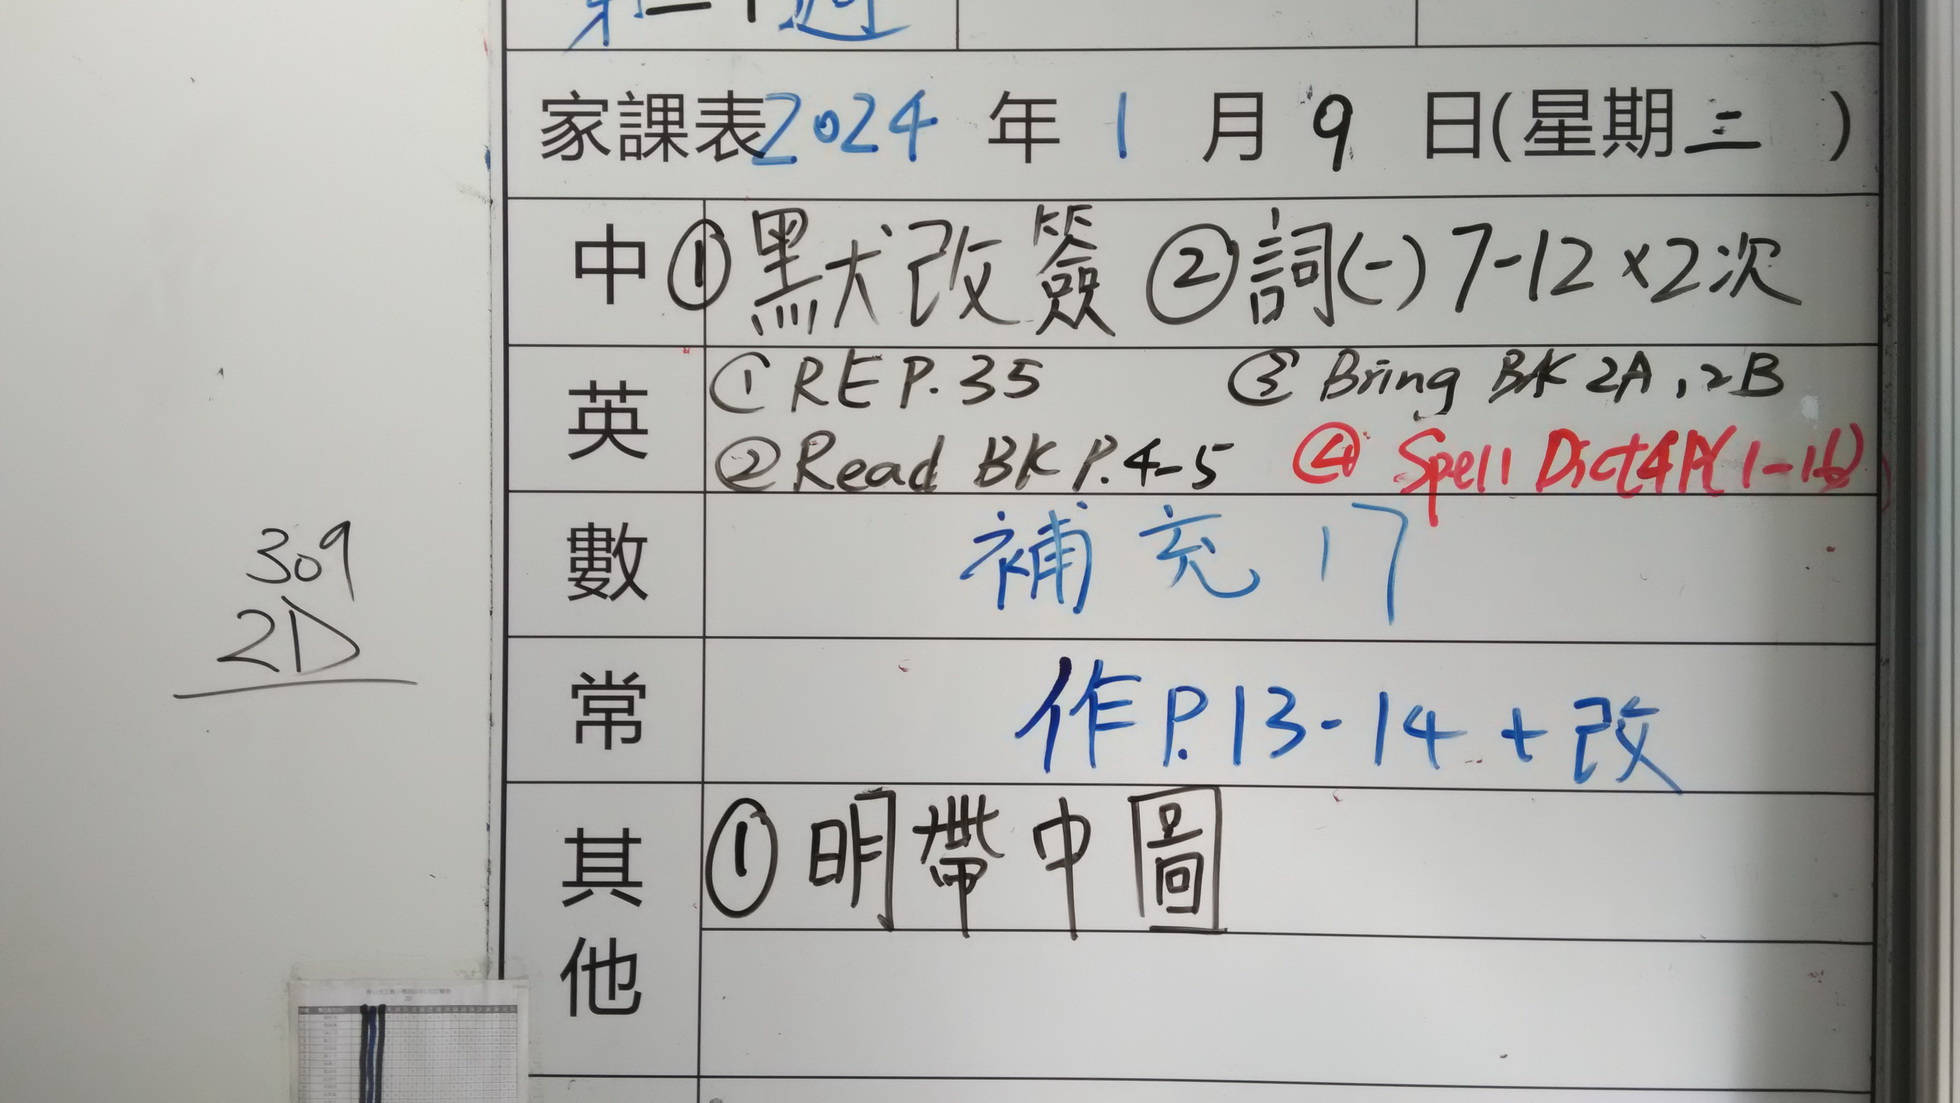 第二十週
家課表2024年1月9日(星期三)
中 ①默改簽 ②詞(一)7-12×2次
英 ①RE P.35 ③Bring BK 2A,2B
②Read BK P.4-5 ④Spell Dict4P(1-16)
數 補充17
常 作P.13-14+改
其他 ①明帶中圖
309
2D